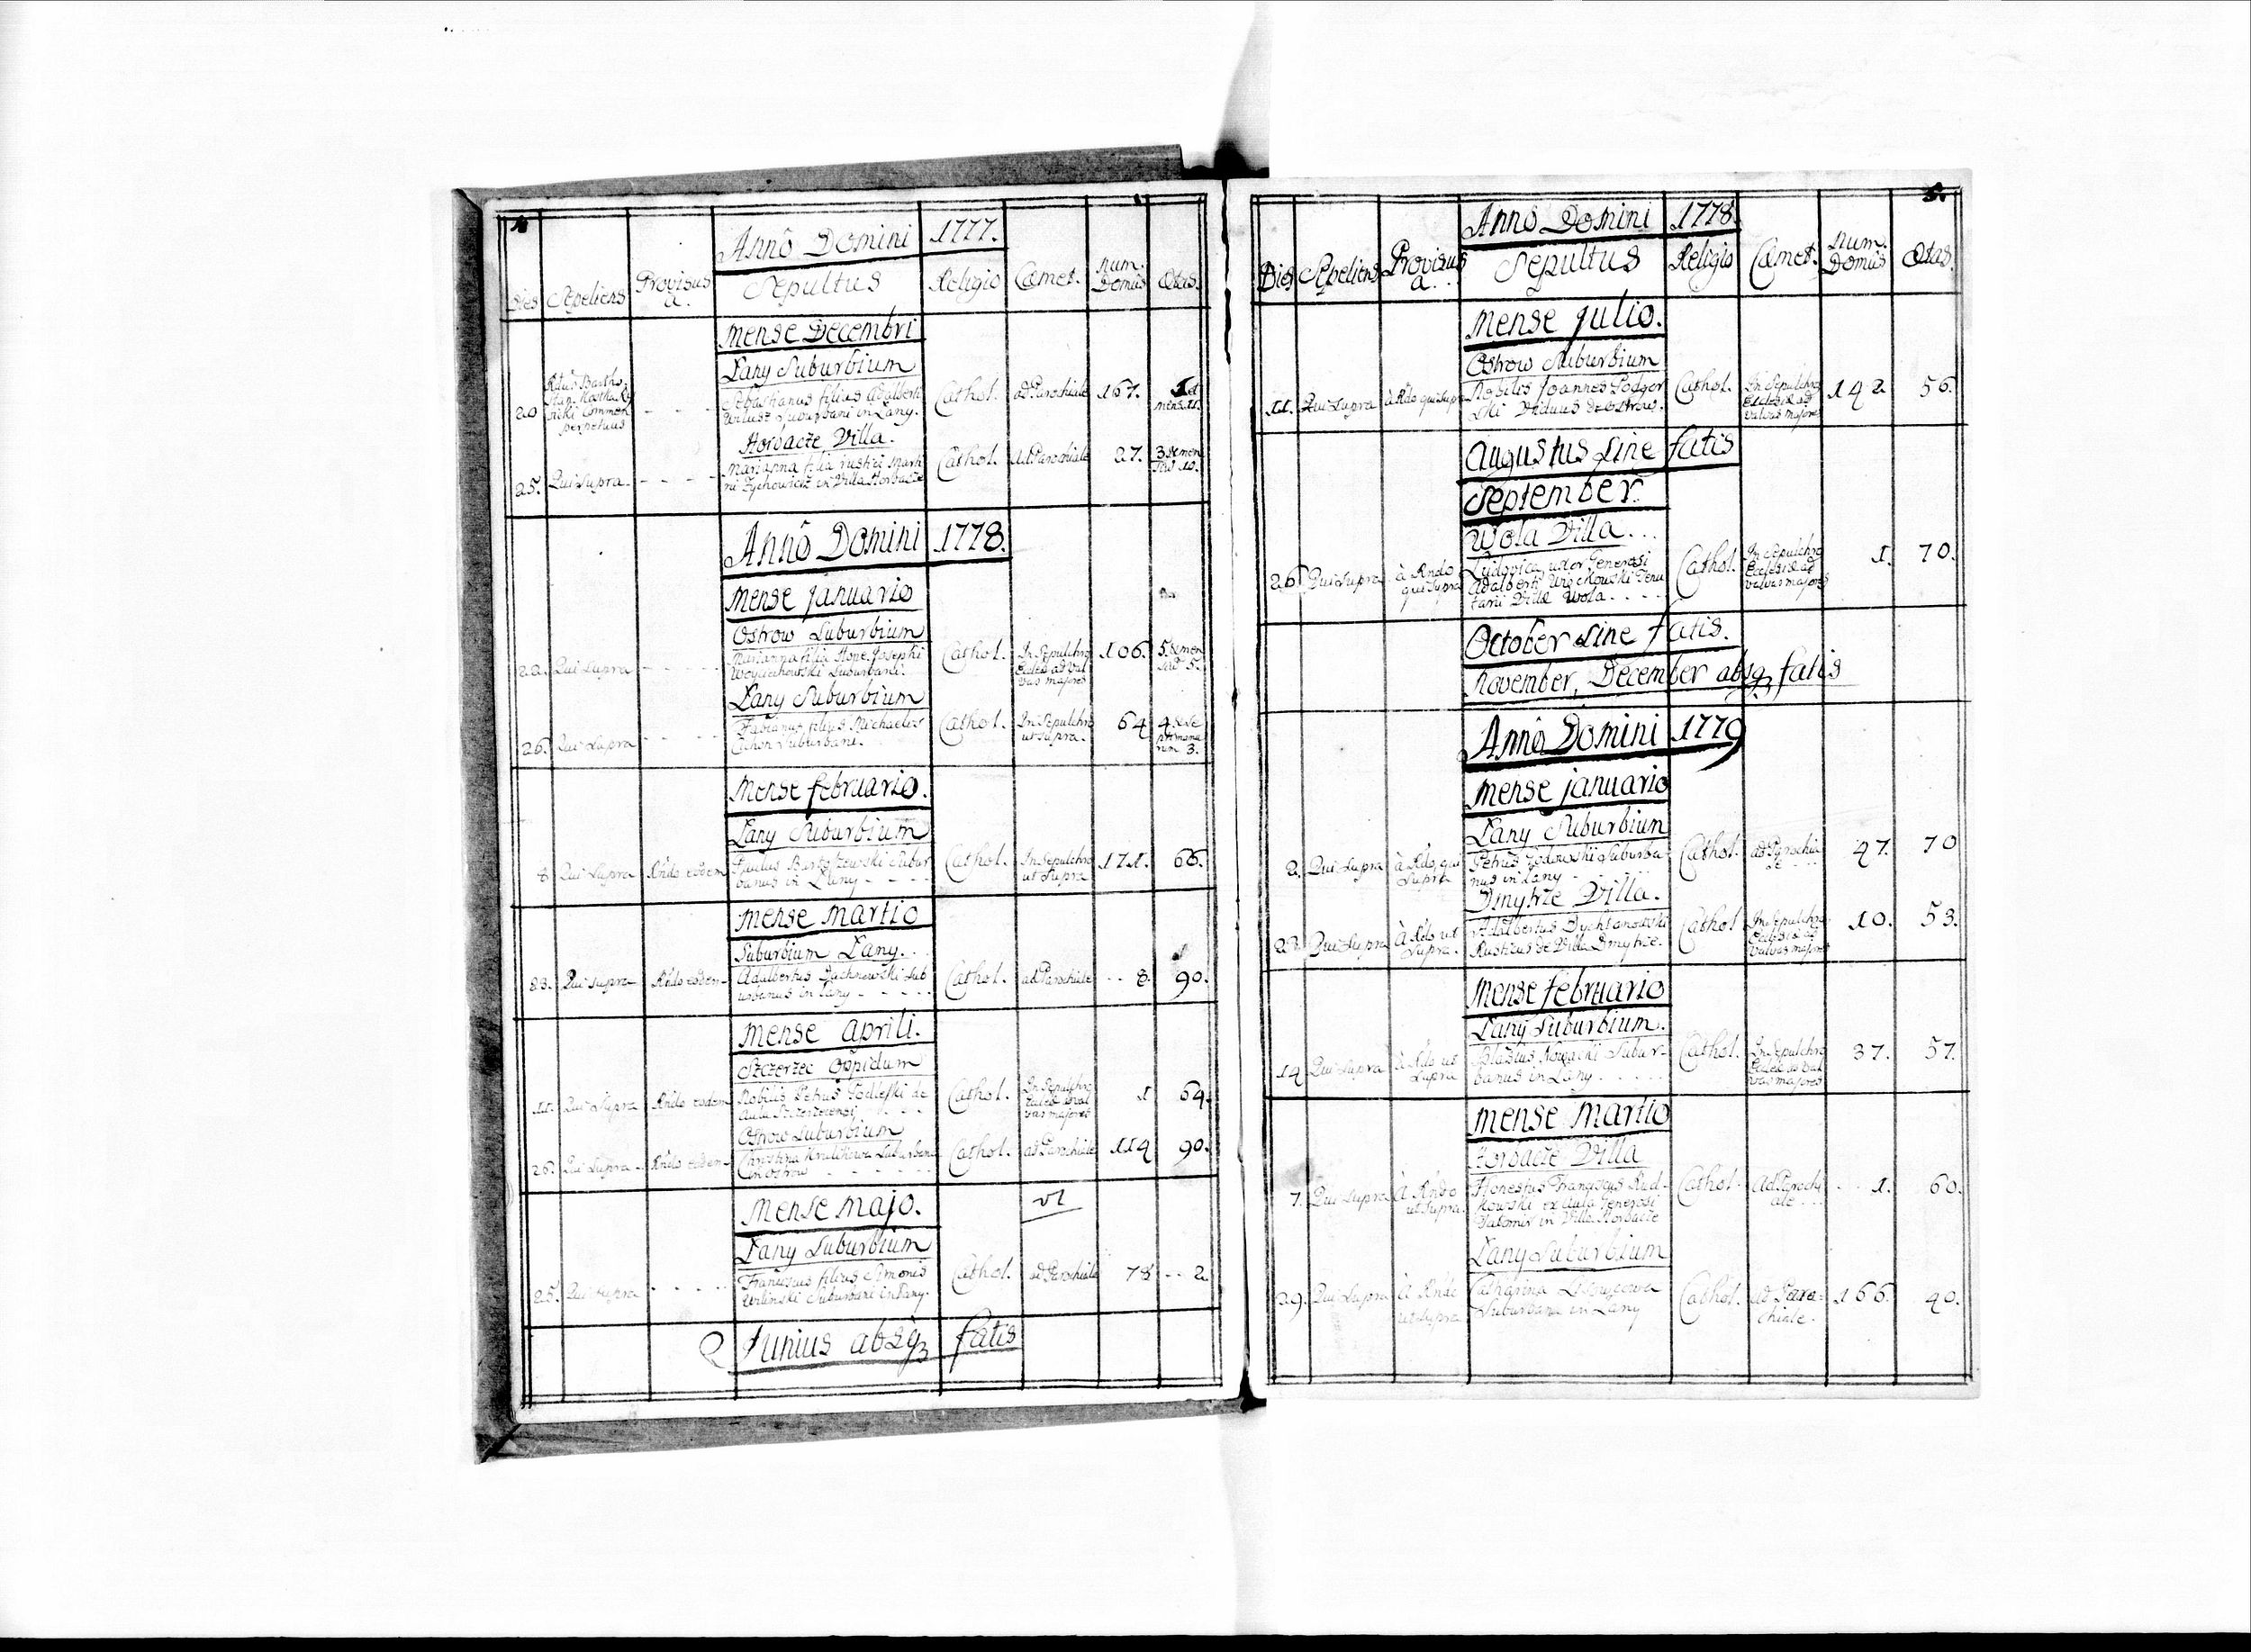 Anno Domini 1777.
Dies Sepeliens Provisus a. Sepultus Religio Cæmet. Num. Domus Ætas.
Mense Decembri
Łany Suburbium
20 perpetuus - - - Sebastianus filius Adalberti Suburbani in Łany. Cathol. ad Parochiale 167. 1 et mens. 11.
Horbacze Villa.
25. Qui Supra. - - - - Marianna filia rustici Marti ni Zychowicz in Villa Horbacze Cathol. ad Parochiale 27. 3 10.
Anno Domini 1778.
Mense Januario
Ostrow Suburbium
22. Qui Supra - - - - Marianna filia Hone. Josephi Woyciechowski Suburbani. Cathol. In Sepulchro Eccles ad Val vas majores 106. 5. et men 5.
Łany Suburbium
26. Qui Supra - - - Fabianus filius Michaelis Cichon Suburbani. Cathol. In Sepulchro ut supra. 64 4 3.
Mense Februario.
Łany Suburbium
8. Qui Supra Rndo eodem Paulus Subur banus in Łany - - - - Cathol. In Sepulchro ut Supra 171. 66.
Mense Martio
Suburbium Łany. .
23. Qui Supra Rndo eodem Adalbertus Dachnowski Sub urbanus in Łany - - - - Cathol. ad Parochiale - - 8. 90.
Mense Aprili.
Szczerzec Oppidum
11. Qui Supra Rndo eodem Nobilis Petrus Podleski de aula Szczerzecensi Cathol. In Sepulchro Eccles ad val vas majores 1 64.
Ostrow Suburbium
26. Qui Supra Rndo eodem Christina Kralikowa Suburbana in Ostrow Cathol. ad Parochiale 114 90.
Mense Majo.
vt
Łany Suburbium
25. Qui Supra - - - - Franciscus filius Simonis Wilinski Suburbani in Łany. Cathol. ad Parochiale 78 - - 2
Junius absq3 fatis
5.
Anno Domini 1778.
Dies Sepeliens Provisus a. . Sepultus Religio Cæmet. Num. Domus Ætas.
Mense Julio.
Ostrow Suburbium
11. Qui Supra à Rdo qui supra Nobilis Joannes Podgor ski Viduus de Ostrow. Cathol. In Sepulchro Ecclesiæ ad valvas majores 142 56.
Augustus sine fatis
September.
Wola Villa . . .
26. Qui Supra à Rndo qui Supra Ludovica uxor Generosi Adalberti Wnękowski Tenu tarii Villæ Wola. . . - - Cathol. In Sepulchro Ecclesiæ ad valvas majores 1. 70.
October sine fatis.
November, December absq3 fatis
Anno Domini 1779
Mense Januario
Łany Suburbium
2. Qui Supra à Rdo qui Supra Petrus Suburba nus in Łany Cathol. ad Parochia le 47. 70
Dmytrze Villa.
22. Qui Supra à Rdo ut Supra. Adalbertus Rusticus de Villa Dmytrze. Cathol In Sepulchro Ecclesiæ ad valvas majores 10. 53.
Mense Februario
Łany Suburbium.
14 Qui Supra à Rdo ut Supra Blasius Nowacki Subur- banus in Łany . . . . . Cathol. In Sepulchro Eccles ad val vas majores 37. 57.
Mense Martio
Horbacze Villa
7. Qui Supra à Rndo ut Supra. Honestus Franciscus Rud- kowski ex aula Generosi in Villa Horbacze Cathol. Ad Parochi ale - - - - 1. 60.
Łany Suburbium
29. Qui Supra à Rndo ut Supra Catharina Suburbana in Łany Cathol. ad Paro- chiale. 166. 40.